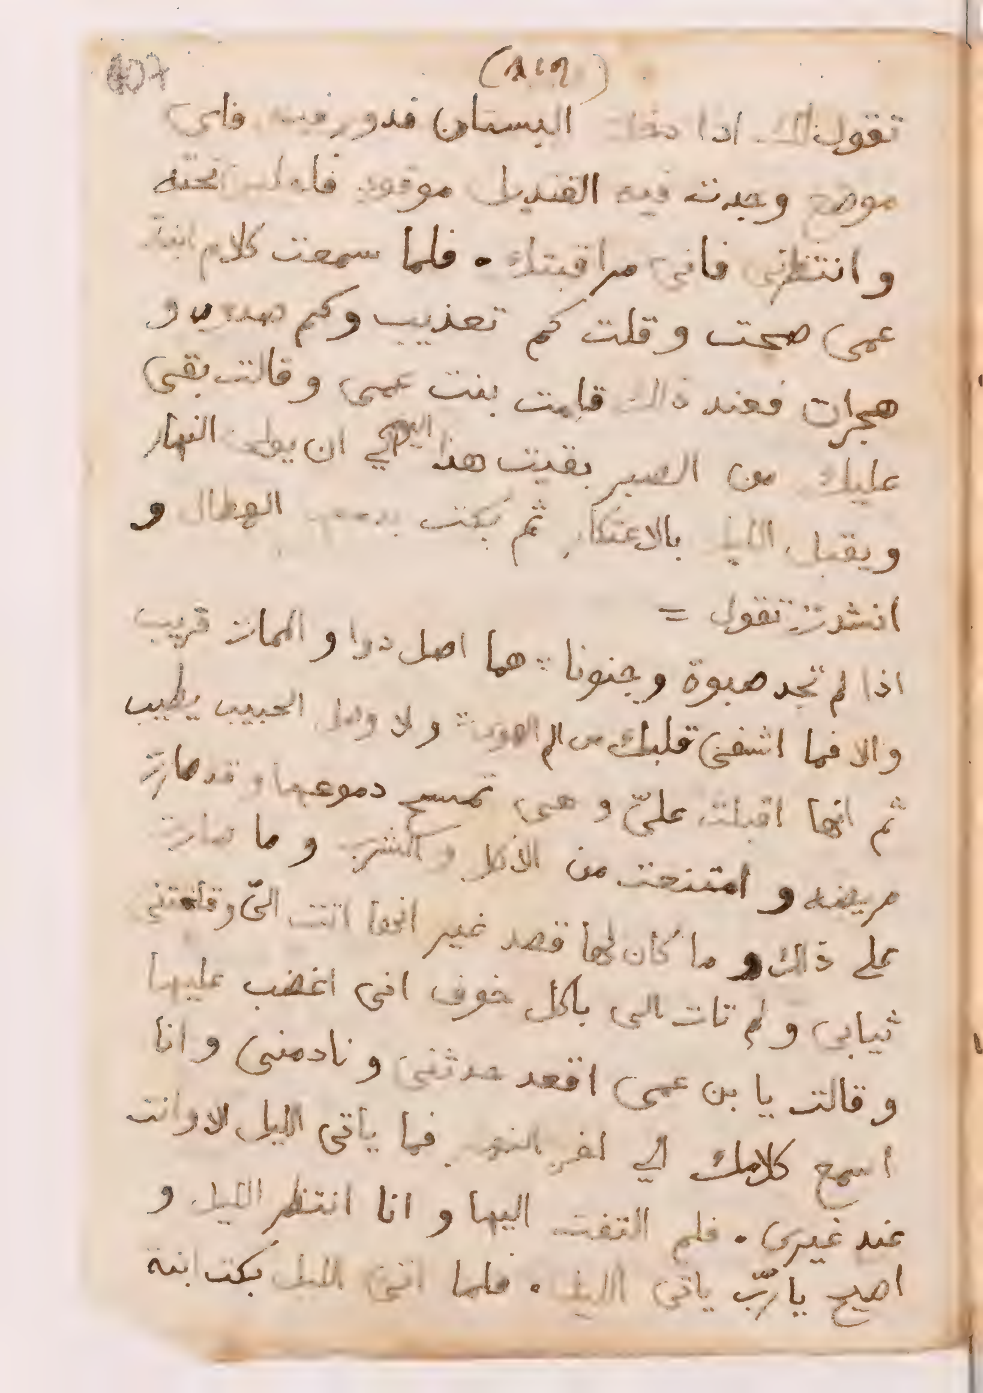 (٨١٩)
تقول لك اذا دخلت البستان فدور فيه فاى
موضع وجدت فيه القنديل موقود فاجلس تحته
و انتظرنى فانى مراقبتك . فلما سمعت كلام ابنة
عمى صحت و قلت كم تعذيب وكم صدود و
هجران فعند ذلك قامت بنت عمى و قالت بقى
عليك من الصبر بقيت هذا اليوم الي ان يولى النهار
ويقبل الليل بالاعتكار ثم بكت بدمعها الهطال و
انشدت تقول =
اذا لم تجد صبوة وجنونا ∴ هما اصل دوا و الممات قريب
والا فما اشفى قلبك من الم الهوى ∴ ولا وصل الحبيب يطيب
ثم انها اقبلت علىّ و هى تمسح دموعها و قد صارت
مريضه و امتنعت من الاكل و الشرب و ما صارت
على ذلك و ما كان لها قصد غير انها اتت الىّ وقلعتنى
ثيابى و لم تات الى باكل خوف انى اغضب عليها
و قالت يا بن عمى اقعد حدثنى و نادمنى و انا
اسمع كلامك الي اخر النهار فما ياتى الليل الا وانت
عند غيرى . فلم التفت اليها و انا انتظر الليل و
اصيح يا ربّ ياتى الليل . فلما اتى الليل بكت ابنة